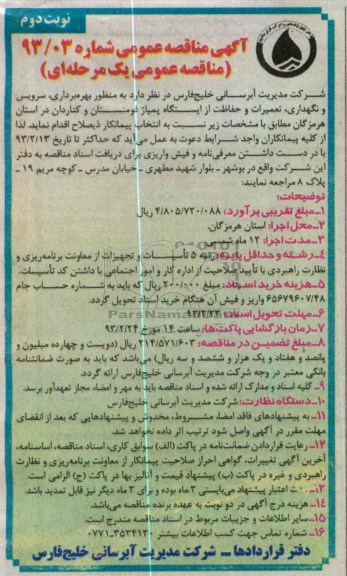 نوبت دوم
آگهی مناقصه عمومی شماره ۹۳/۰۳
(مناقصه عمومی یک مرحله‌ای)
شرکت مدیریت آبرسانی خلیج‌فارس در نظر دارد به منظور بهره‌برداری، سرویس
و نگهداری، تعمیرات و حفاظت از ایستگاه پمپاژ نومنستان و کناردان در استان
هرمزگان مطابق با مشخصات زیر نسبت به انتخاب پیمانکار ذیصلاح اقدام نماید. لذا
از کلیه پیمانکاران واجد شرایط دعوت به عمل می‌آید که حداکثر تا تاریخ ۹۳/۲/۱۳
با در دست داشتن معرفی‌نامه و فیش واریزی برای دریافت اسناد مناقصه به دفتر
این شرکت واقع در بوشهر ـ بلوار شهید مطهری ـ خیابان مدرس ـ کوچه مریم ۱۹ ـ
پلاک ۸ مراجعه نمایند:
توضیحات:
۱ـ مبلغ تقریبی برآورد: ۴/۸۰۵/۷۲۰/۰۸۸ ریال
۲ـ محل اجرا: استان هرمزگان.
۳ـ مدت اجرا: ۱۲ ماه شمسی
۴ـ رشته و حداقل پایه: رتبه ۵ تأسیسات و تجهیزات از معاونت برنامه‌ریزی و
نظارت راهبردی با تأیید صلاحیت از اداره کار و امور اجتماعی با داشتن کد تأسیسات.
۵ـ هزینه خرید اسناد: مبلغ ۲۰۰/۰۰۰ ریال که باید به شماره حساب جام
۶۵۶۷۹۶۰۷/۴۸ واریز و فیش آن هنگام خرید اسناد تحویل گردد.
۶ـ مهلت تحویل اسناد: ۹۳/۲/۲۳
۷ـ زمان بازگشایی پاکت‌ها: ساعت ۱۴ مورخ ۹۳/۲/۲۴
۸ـ مبلغ تضمین در مناقصه: ۲۱۴/۵۷۱/۶۰۳ ریال (دویست و چهارده میلیون و
پانصد و هفتاد و یک هزار و ششصد و سه ریال) می‌باشد که باید به صورت ضمانتنامه
بانکی معتبر در وجه شرکت مدیریت آبرسانی خلیج‌فارس ارائه گردد.
۹ـ کلیه اسناد و مدارک ارائه شده و اسناد مناقصه باید به مهر و امضاء مجاز تعهدآور برسد.
۱۰ـ دستگاه نظارت: شرکت مدیریت آبرسانی خلیج‌فارس
۱۱ـ به پیشنهادهای فاقد امضا، مشروط، مخدوش و پیشنهادهایی که بعد از انقضای
مهلت مقرر در آگهی واصل شود ترتیب اثر داده نخواهد شد.
۱۲ـ رعایت قراردادن ضمانت‌نامه در پاکت (الف) سوابق کاری، اسناد مناقصه، اساسنامه،
آخرین آگهی تغییرات، گواهی احراز صلاحیت پیمانکار از معاونت برنامه‌ریزی و نظارت
راهبردی و غیره در پاکت (ب) پیشنهاد قیمت و آنالیز بها در پاکت (ج) الزامی است.
۱۳ـ مدت اعتبار پیشنهاد می‌بایستی ۳ ماه بوده و برای ۳ ماه دیگر نیز قابل تمدید باشد.
۱۴ـ هزینه درج آگهی در دو نوبت به عهده برنده مناقصه می‌باشد.
۱۵ـ سایر اطلاعات و جزییات مربوط در اسناد مناقصه مندرج است.
۱۶ـ شماره تماس جهت کسب اطلاعات بیشتر ۳۵۳۴۱۳۰ـ۰۷۷۱
دفتر قراردادها ـ شرکت مدیریت آبرسانی خلیج‌فارس